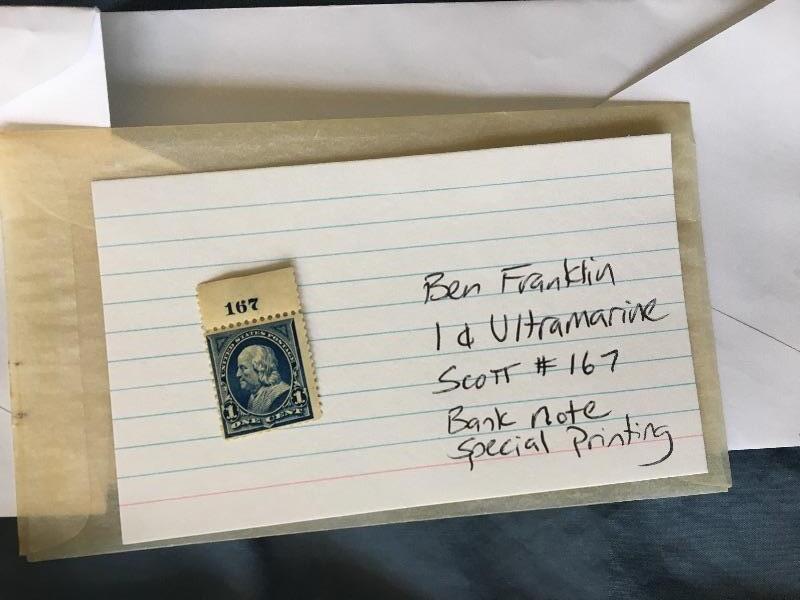 167
UNITED STATES POSTAGE
1 1
ONE CENT
Ben Franklin
1 ¢ Ultramarine
Scott # 167
Bank note
Special Printing